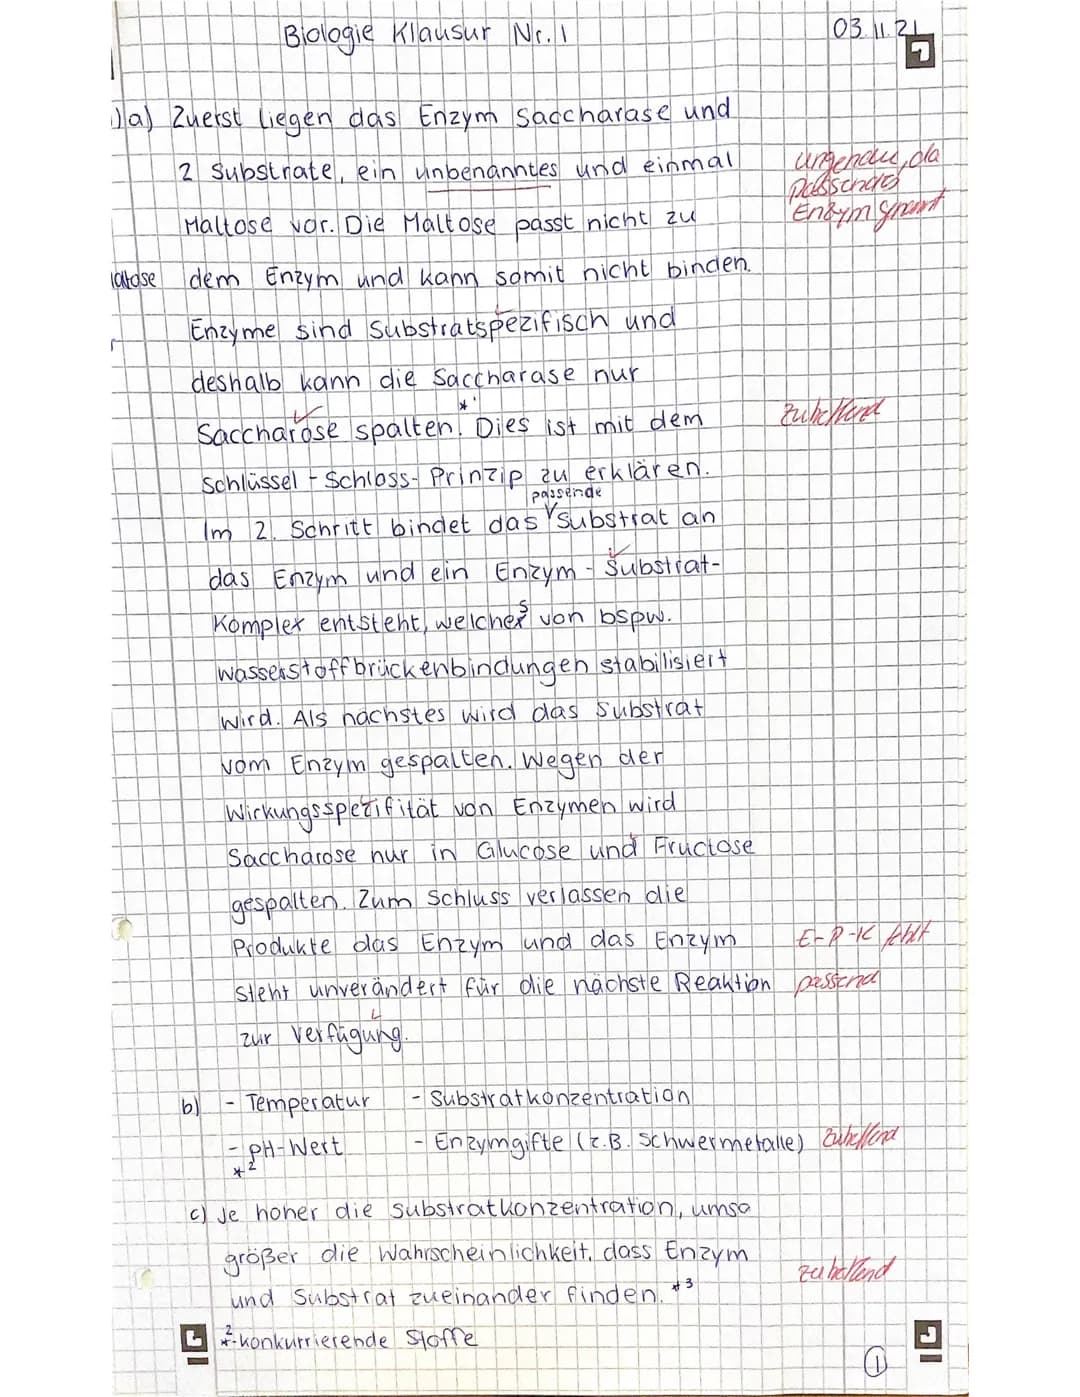 Biologie Klausur Nr. 1 03.11.21
)a) Zuerst liegen das Enzym Saccharase und
2 Substrate, ein unbenanntes und einmal ungenau, da
passendes
Maltose vor. Die Maltose passt nicht zu Enzym
dem Enzym und kann somit nicht binden.
Enzyme sind Substratspezifisch und
deshalb kann die Saccharase nur
Saccharose spalten.*¹ Dies ist mit dem zutreffend
Schlüssel-Schloss-Prinzip zu erklären.
passende
Im 2. Schritt bindet das substrat an
das Enzym und ein Enzym-Substrat-
Komplex entsteht, welches von bspw.
wasserstoffbrückenbindungen stabilisiert
wird. Als nächstes wird das Substrat
vom Enzym gespalten. Wegen der
Wirkungsspezifität von Enzymen wird
Saccharose nur in Glucose und Fructose
gespalten. Zum Schluss verlassen die
Produkte das Enzym und das Enzym E-P-K fehlt
steht unverändert für die nächste Reaktion passend
zur Verfügung.
b) - Temperatur - Substratkonzentration
- pH-Wert - Enzymgifte (z.B. Schwermetalle) zutreffend
*²
c) Je höher die substratkonzentration, umso
größer die Wahrscheinlichkeit, dass Enzym
und Substrat zueinander finden. *³ zutreffend
*²-konkurrierende Stoffe
1